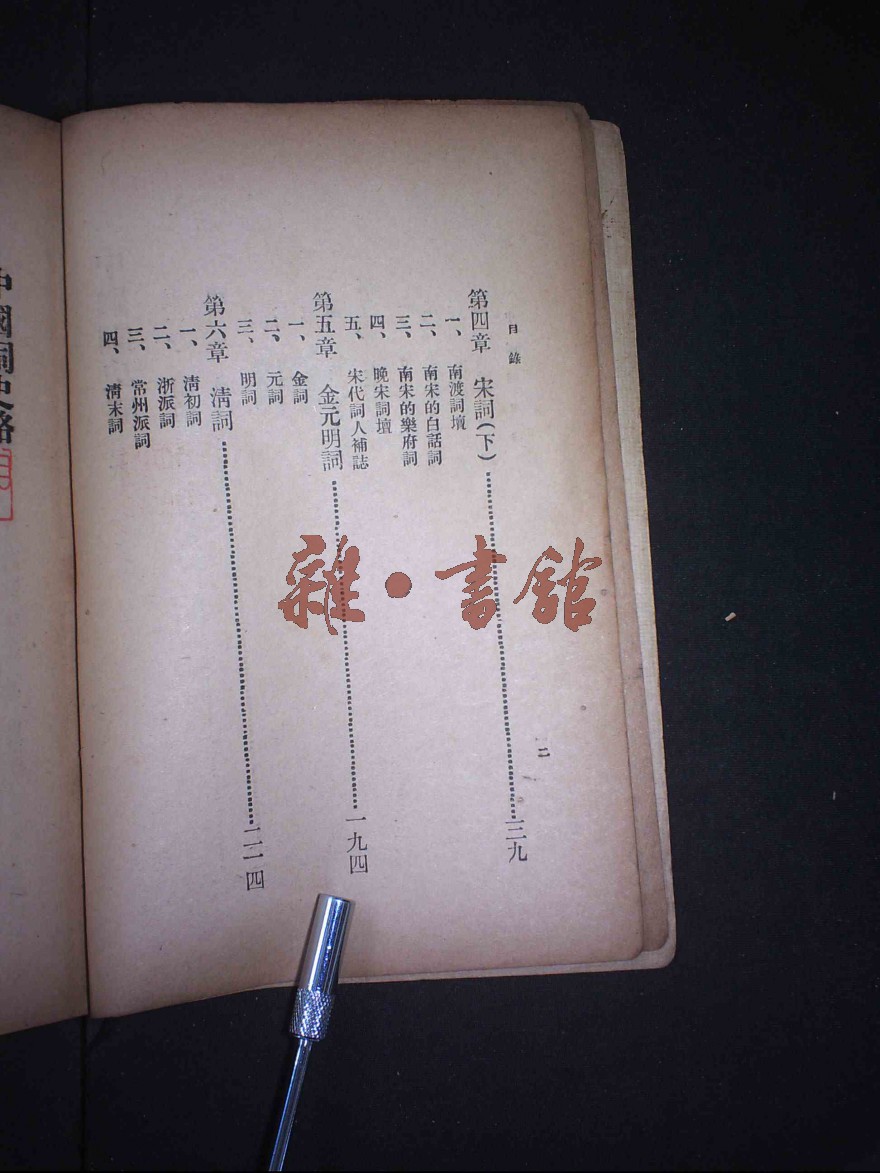 目錄
第四章　宋詞（下）……一三九
一、南渡詞壇
二、南宋的白話詞
三、南宋的樂府詞
四、晚宋詞壇
五、宋代詞人補誌
第五章　金元明詞……一九四
一、金詞
二、元詞
三、明詞
第六章　清詞……二一四
一、清初詞
二、浙派詞
三、常州派詞
四、清末詞
二
中國詞史略
雜·書館